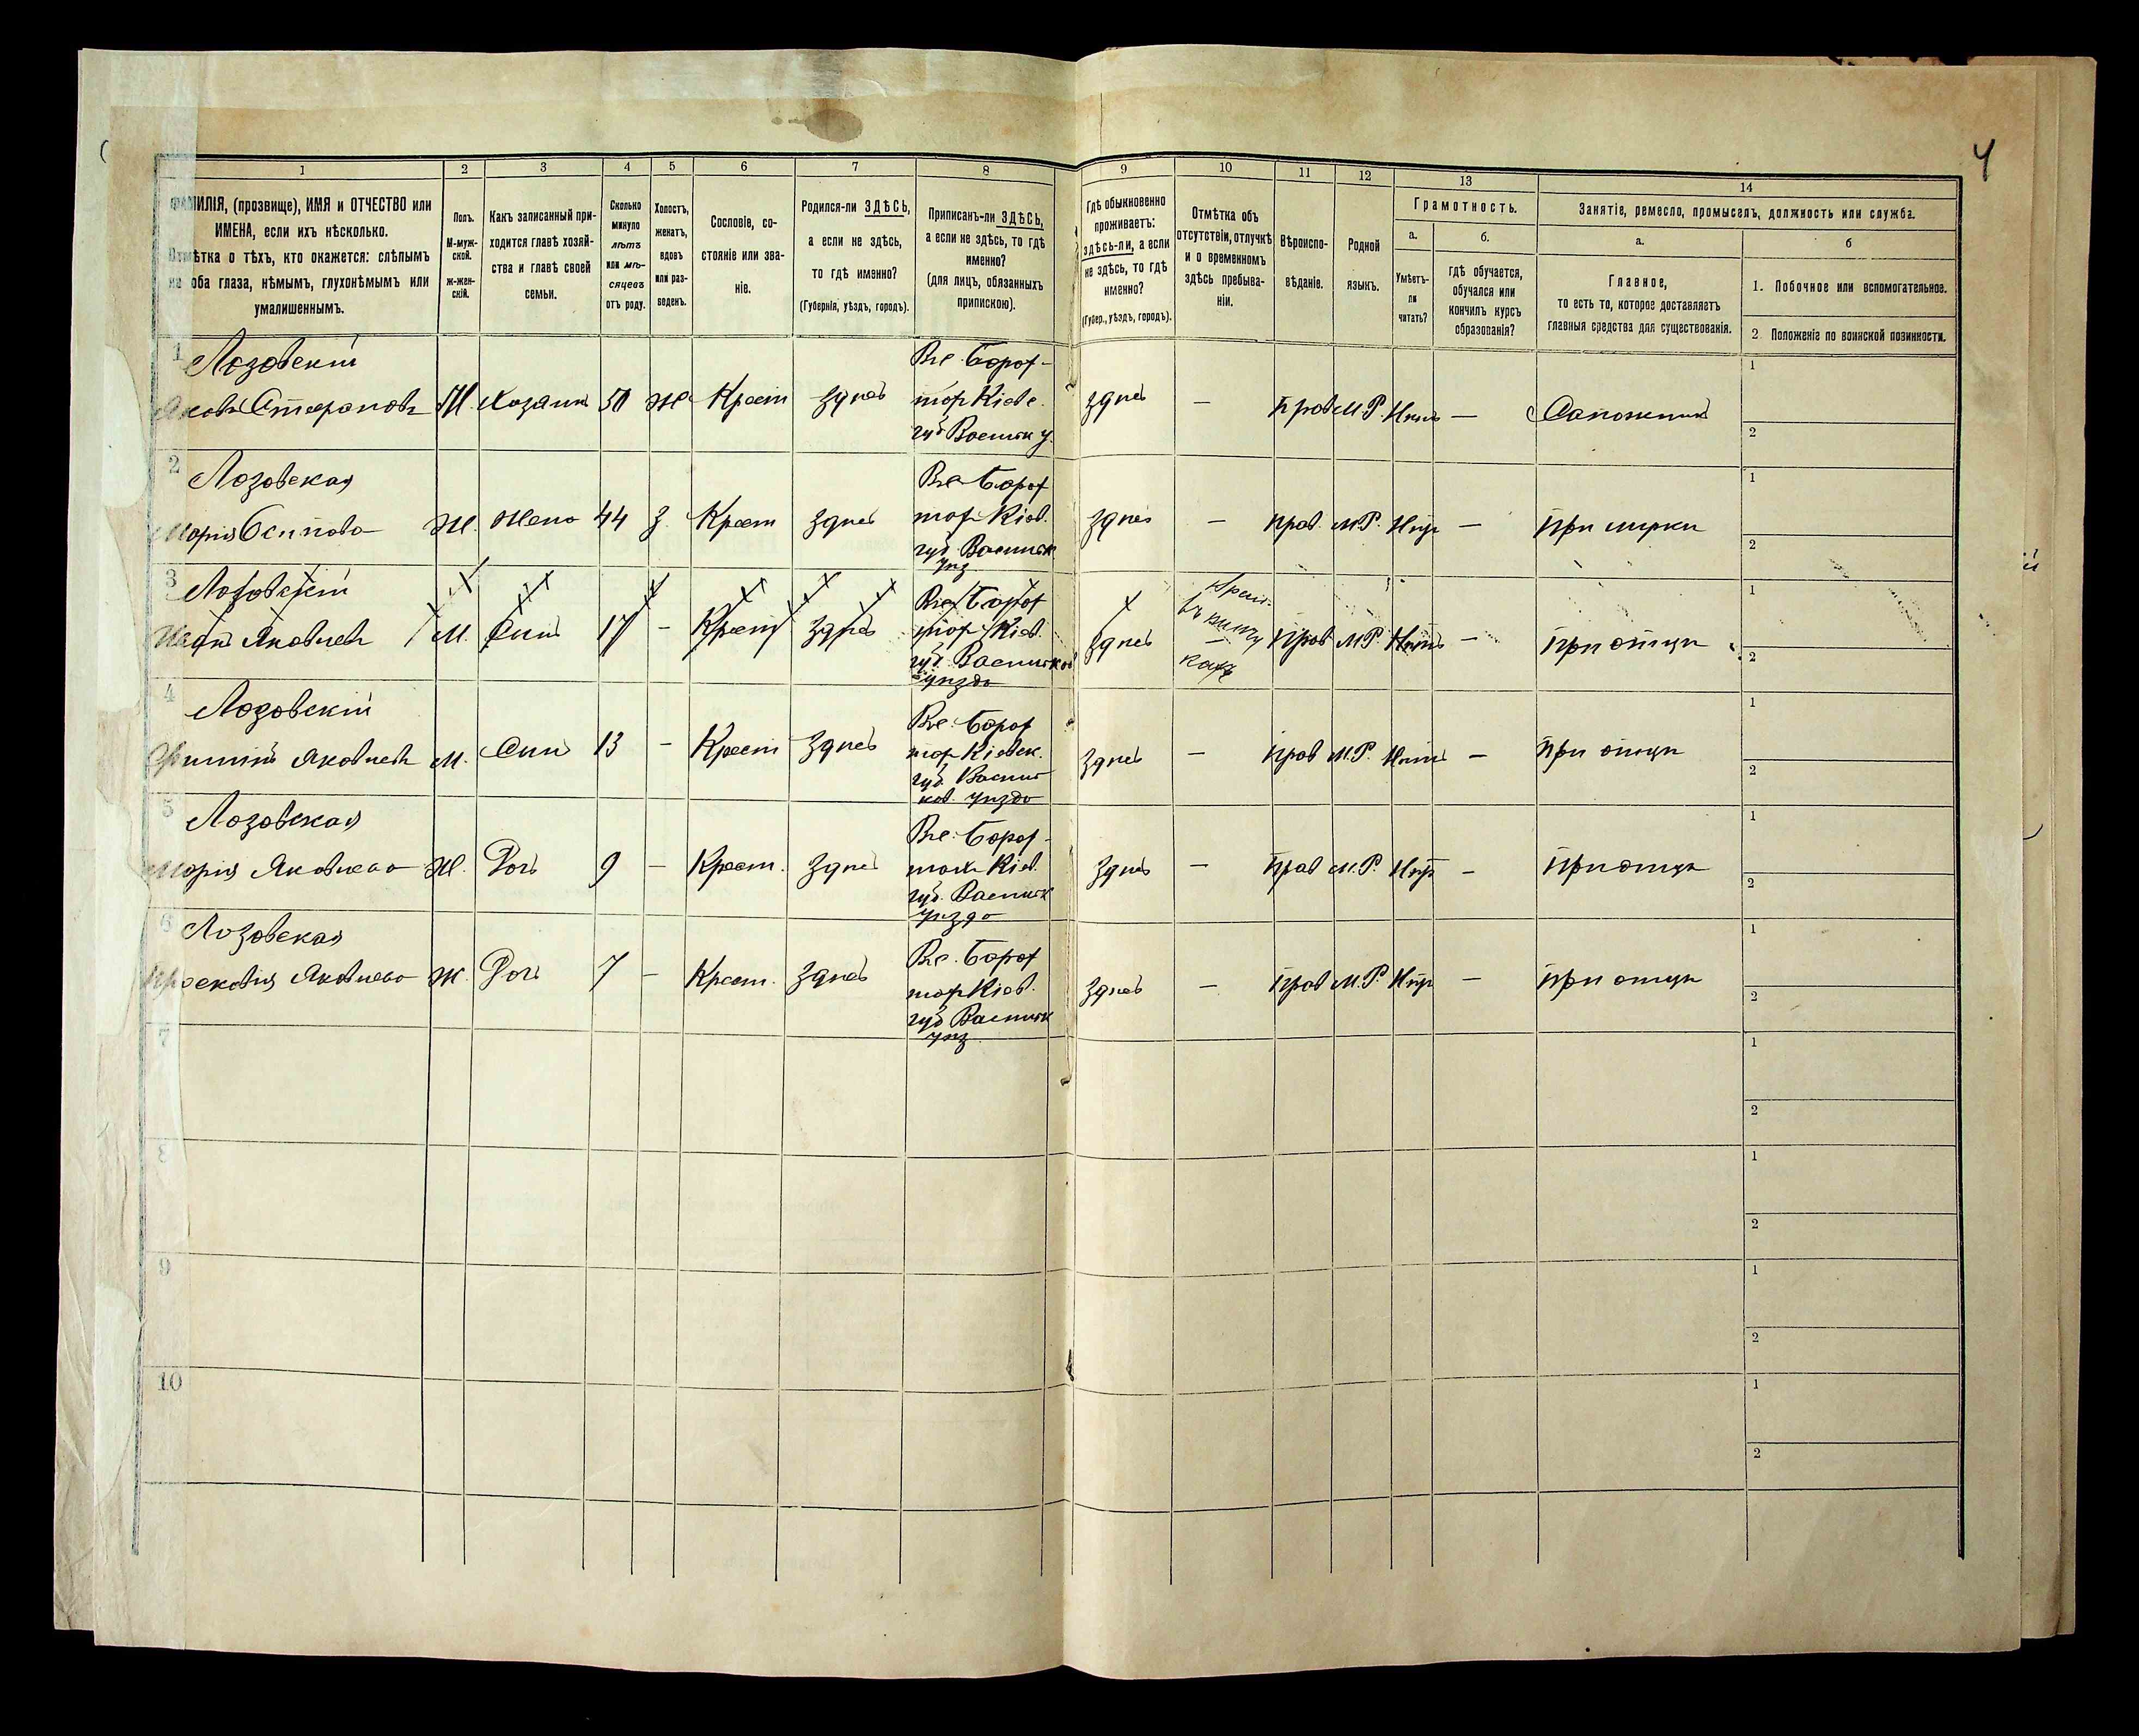 4
1 2 3 4 5 6 7 8 9 10 11 12 13 14
ФАМИЛІЯ, (прозвище), ИМЯ и ОТЧЕСТВО или
ИМЕНА, если ихъ нѣсколько.
Отмѣтка о тѣхъ, кто окажется: слѣпымъ
на оба глаза, нѣмымъ, глухонѣмымъ или
умалишеннымъ.
Полъ.
М-муж-
ской.
ж-жен-
скій.
Какъ записанный при-
ходится главѣ хозяй-
ства и главѣ своей
семьи.
Сколько
минуло
лѣтъ
или мѣ-
сяцевъ
отъ роду.
Холостъ,
женатъ,
вдовъ
или раз-
веденъ.
Сословіе, со-
стояніе или зва-
ніе.
Родился-ли ЗДѢСЬ,
а если не здѣсь,
то гдѣ именно?
(Губернія, уѣздъ, городъ).
Приписанъ-ли ЗДѢСЬ,
а если не здѣсь, то гдѣ
именно?
(для лицъ, обязанныхъ
припискою).
Гдѣ обыкновенно
проживаетъ:
здѣсь-ли, а если
не здѣсь, то гдѣ
именно?
(Губер., уѣздъ, городъ).
Отмѣтка объ
отсутствіи, отлучкѣ
и о временномъ
здѣсь пребыва-
ніи.
Вѣроиспо-
вѣданіе.
Родной
языкъ.
Грамотность.
а.
Умѣетъ-
ли
читать?
б.
гдѣ обучается,
обучался или
кончилъ курсъ
образованія?
Занятіе, ремесло, промыселъ, должность или служба.
а.
Главное,
то есть то, которое доставляетъ
главныя средства для существованія.
б
1. Побочное или вспомогательное.
2 Положеніе по воинской повинности.
1 Лозовскій
Яковъ Стефановъ М. Хозяинъ 50 же Крест здѣсь
Кіевс.
губ Васильк у.
здѣсь — Прав М.Р. Нѣтъ — Сапожникъ
1
2
2 Лозовская
Марія Осипова Ж. Жена 44 з. Крест здѣсь
Кіев.
губ. Васильк
уѣз
здѣсь — Прав. М.Р. Нѣт — При мужѣ
1
2
3 Лозовскій
Иванъ Яковлевъ М. Сынъ 17 — Крест здѣсь
Кіев.
губ. Васильков
уѣзда
здѣсь Прав М.Р. Нѣтъ — При отцѣ
1
2
4 Лозовскій
Яковлевъ М. Сынъ 13 — Крест здѣсь
Кіевск.
губ. Василь
ков. уѣзда
здѣсь — Прав М.Р. Нѣтъ — При отцѣ
1
2
5 Лозовская
Марія Яковлева Ж. Дочь 9 — Крест. здѣсь
Кіев.
губ. Васильк
уѣзда
здѣсь — Прав М.Р. Нѣт — При отцѣ
1
2
6 Лозовская
Яковлева Ж. Дочь 7 — Крест. здѣсь
Кіев.
губ Васильк
уѣз
здѣсь — Прав М.Р. Нѣт — При отцѣ
1
2
7
1
2
8
1
2
9
1
2
10
1
2